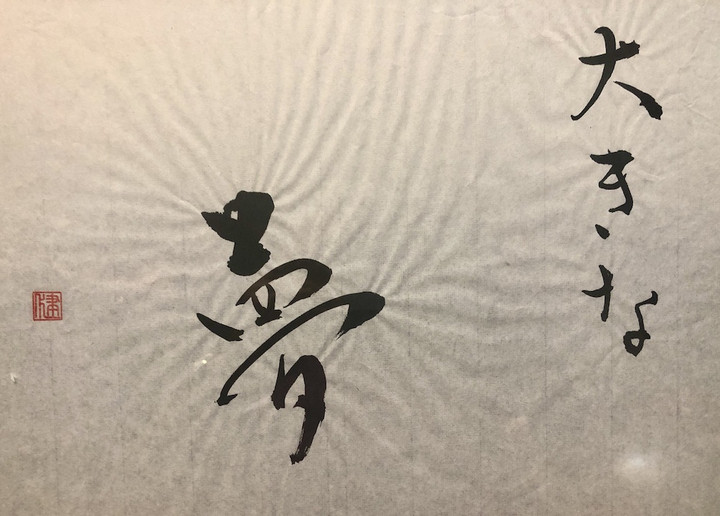 大きな
夢
健